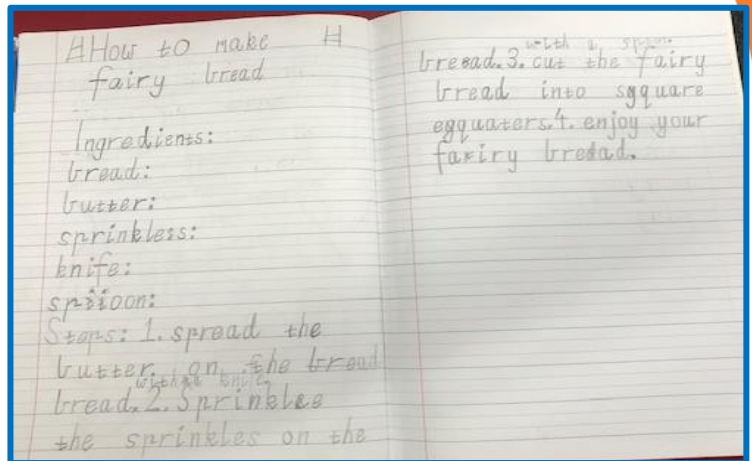 How to make
fairy bread
Ingredients:
bread:
butter:
sprinkless:
knife:
spoon:
Steps: 1. spread the
butter on the bread
with a knife
bread. 2. Sprinkles
the sprinkles on the
with a spoon
bread. 3. cut the fairy
bread into sqquare
egquaters. 4. enjoy your
fairy bread.